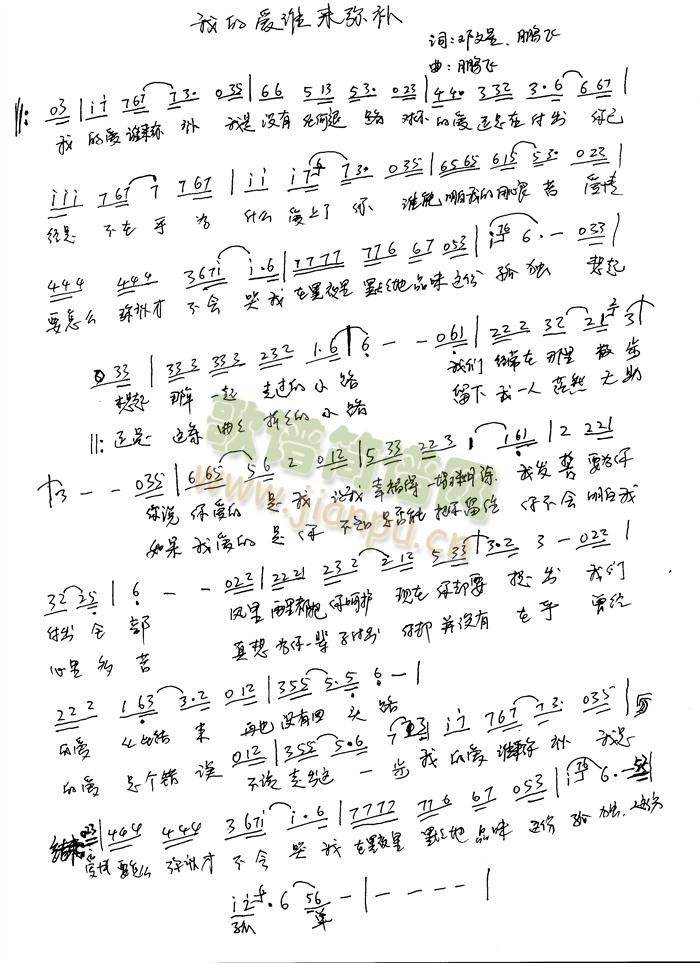 我的爱谁来弥补
词:邓文星、鹏飞
曲:鹏飞
‖: 03 | i i 767 73· 035 | 66 513 53· 023 | 44· 332 3·6 667 |
我 的爱谁来弥补 我是没有任何退路 对你的爱还是在付出 你已
i i i 767 7 767 | i i i 7 73· 035 | 6565 615 53· 023 |
经是 不在乎 为 什么爱上了你 谁能明白我的用心良苦 爱情
444 444 367i i·6 | 7777 776 67 053 | i 6·- 033 |
要怎么 弥补才 不会哭 我在黑夜里 默默地品味这份孤独 想起
033 | 333 333 232 1·6 | 6 - - 061 | 222 32 21 3 |
想起 那年一起 走过的小路 我们 经常在那里散步
‖: 还是 这条曲曲折折的小路 留下我一人茫然无助
3 - - 035 | 665 56 2 012 | 533 223 1 161 | 2 221
你说 你爱的是我 说我幸福得 我发誓 要为你
如果 我爱的是你 不知是否能把你留住 你不会明白我
3235 | 6 - - 022 | 2221 232 212 533 | 3·2 3 - 022 |
付出全部 风里雨里都把你呵护 现在你却要 我们
心里多苦 真想为你一辈子付出 你却并没有在乎 曾经
222 163 3·2 012 | 355 5·5 6 - |
的爱 从此结束 再也没有回头路
的爱 是个错误 012 | 355 5·6 i i 767 73· 035 |
不该走出这一步 我的爱谁来弥补 我是
结束: 023 | 444 444 367i i·6 | 7777 776 67 053 | i 6·
爱情 要怎么 弥补才 不会哭 我在黑夜里 默默地品味这份孤独, 这份
i i·6 56 - | - - - - |
孤 单
歌谱简谱网
www.jianpu.cn